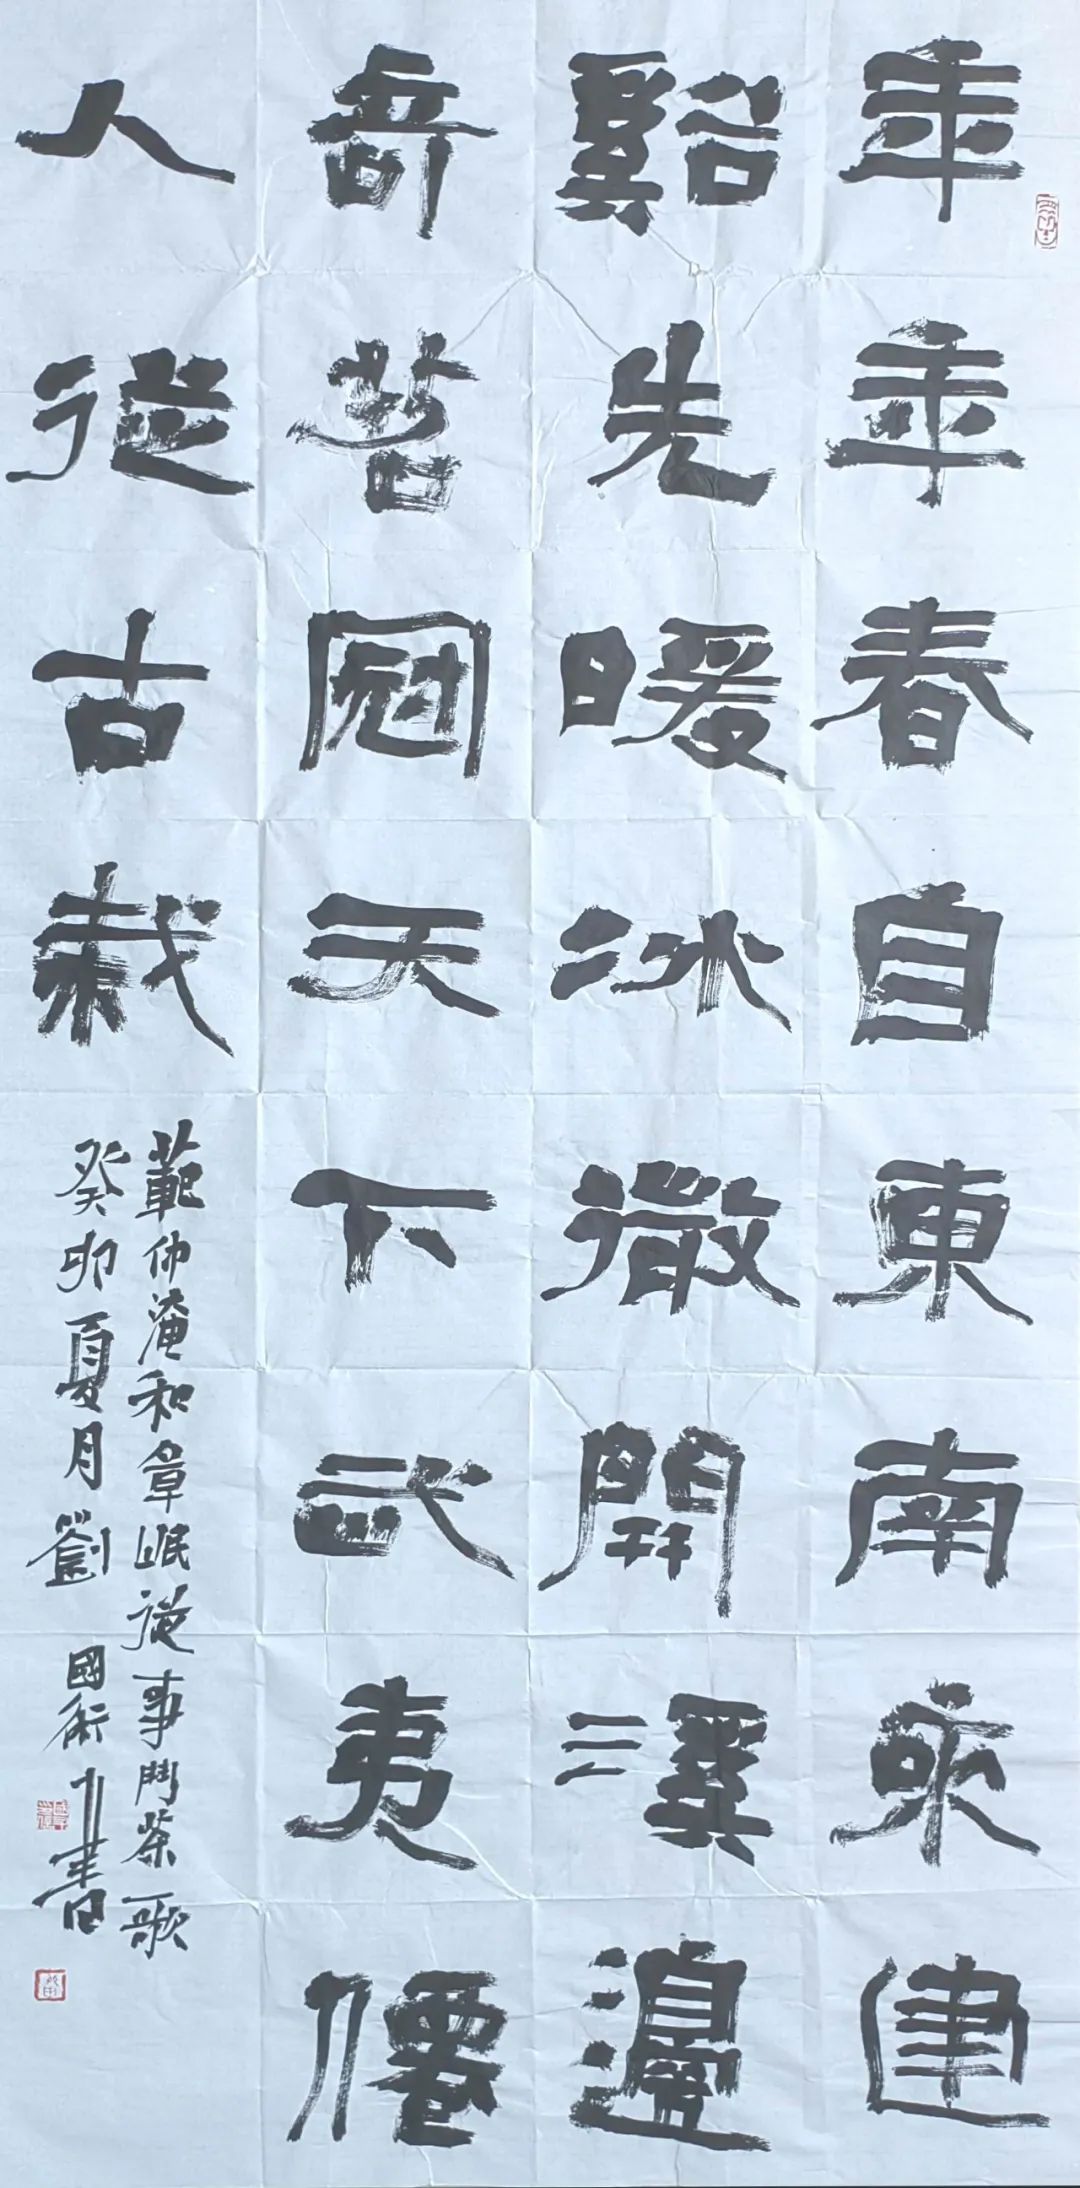 年年春自東南來建
谿先暖冰微開溪邊
奇茗冠天下武夷僊
人從古栽
範仲淹和章岷從事鬥茶歌
癸卯夏月劉國術書